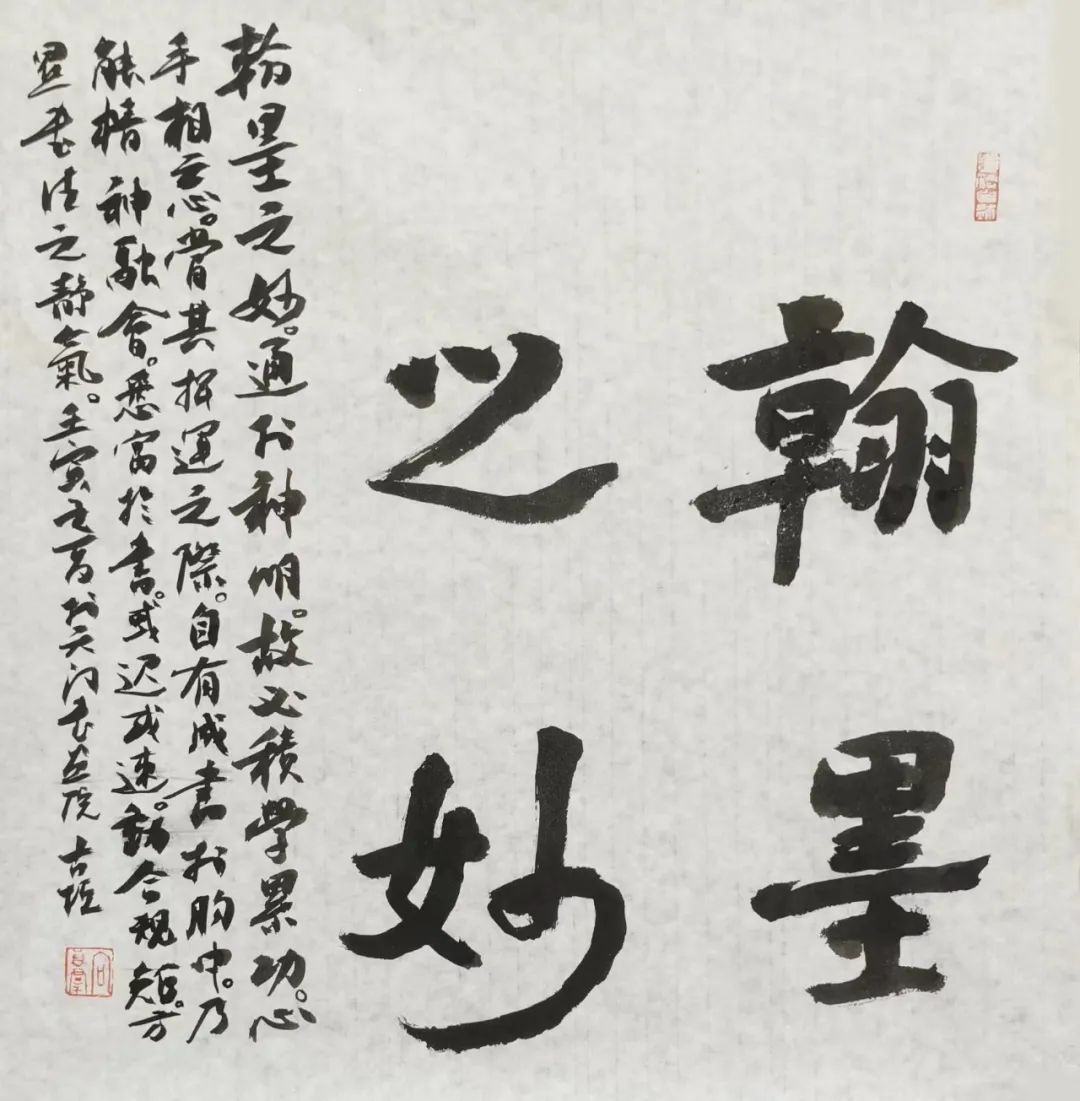 翰墨
之妙
翰墨之妙。通於神明。故必積學累功。心
手相忘。當其揮運之際。自有成書於胸中。乃
能精神融會。悉寓於書。或迟或速。動合規矩。方
显书法之静氣。壬寅之夏於天门书画院 古垣